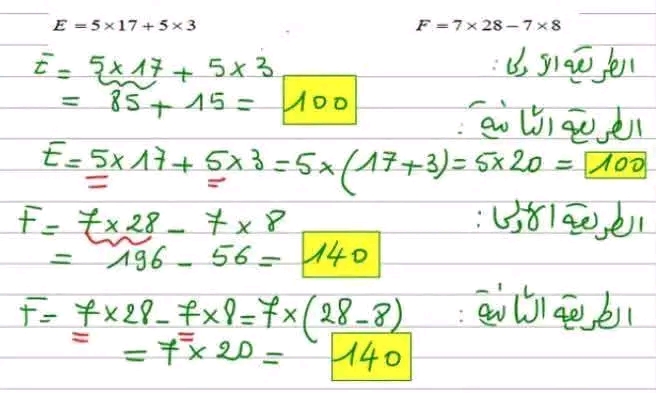 E = 5 × 17 + 5 × 3
F = 7 × 28 − 7 × 8
الطريقة الأولى:
E = 5 × 17 + 5 × 3
= 85 + 15 = 100
الطريقة الثانية:
E = 5 × 17 + 5 × 3 = 5 × (17 + 3) = 5 × 20 = 100
الطريقة الأولى:
F = 7 × 28 − 7 × 8
= 196 − 56 = 140
الطريقة الثانية:
F = 7 × 28 − 7 × 8 = 7 × (28 − 8)
= 7 × 20 = 140